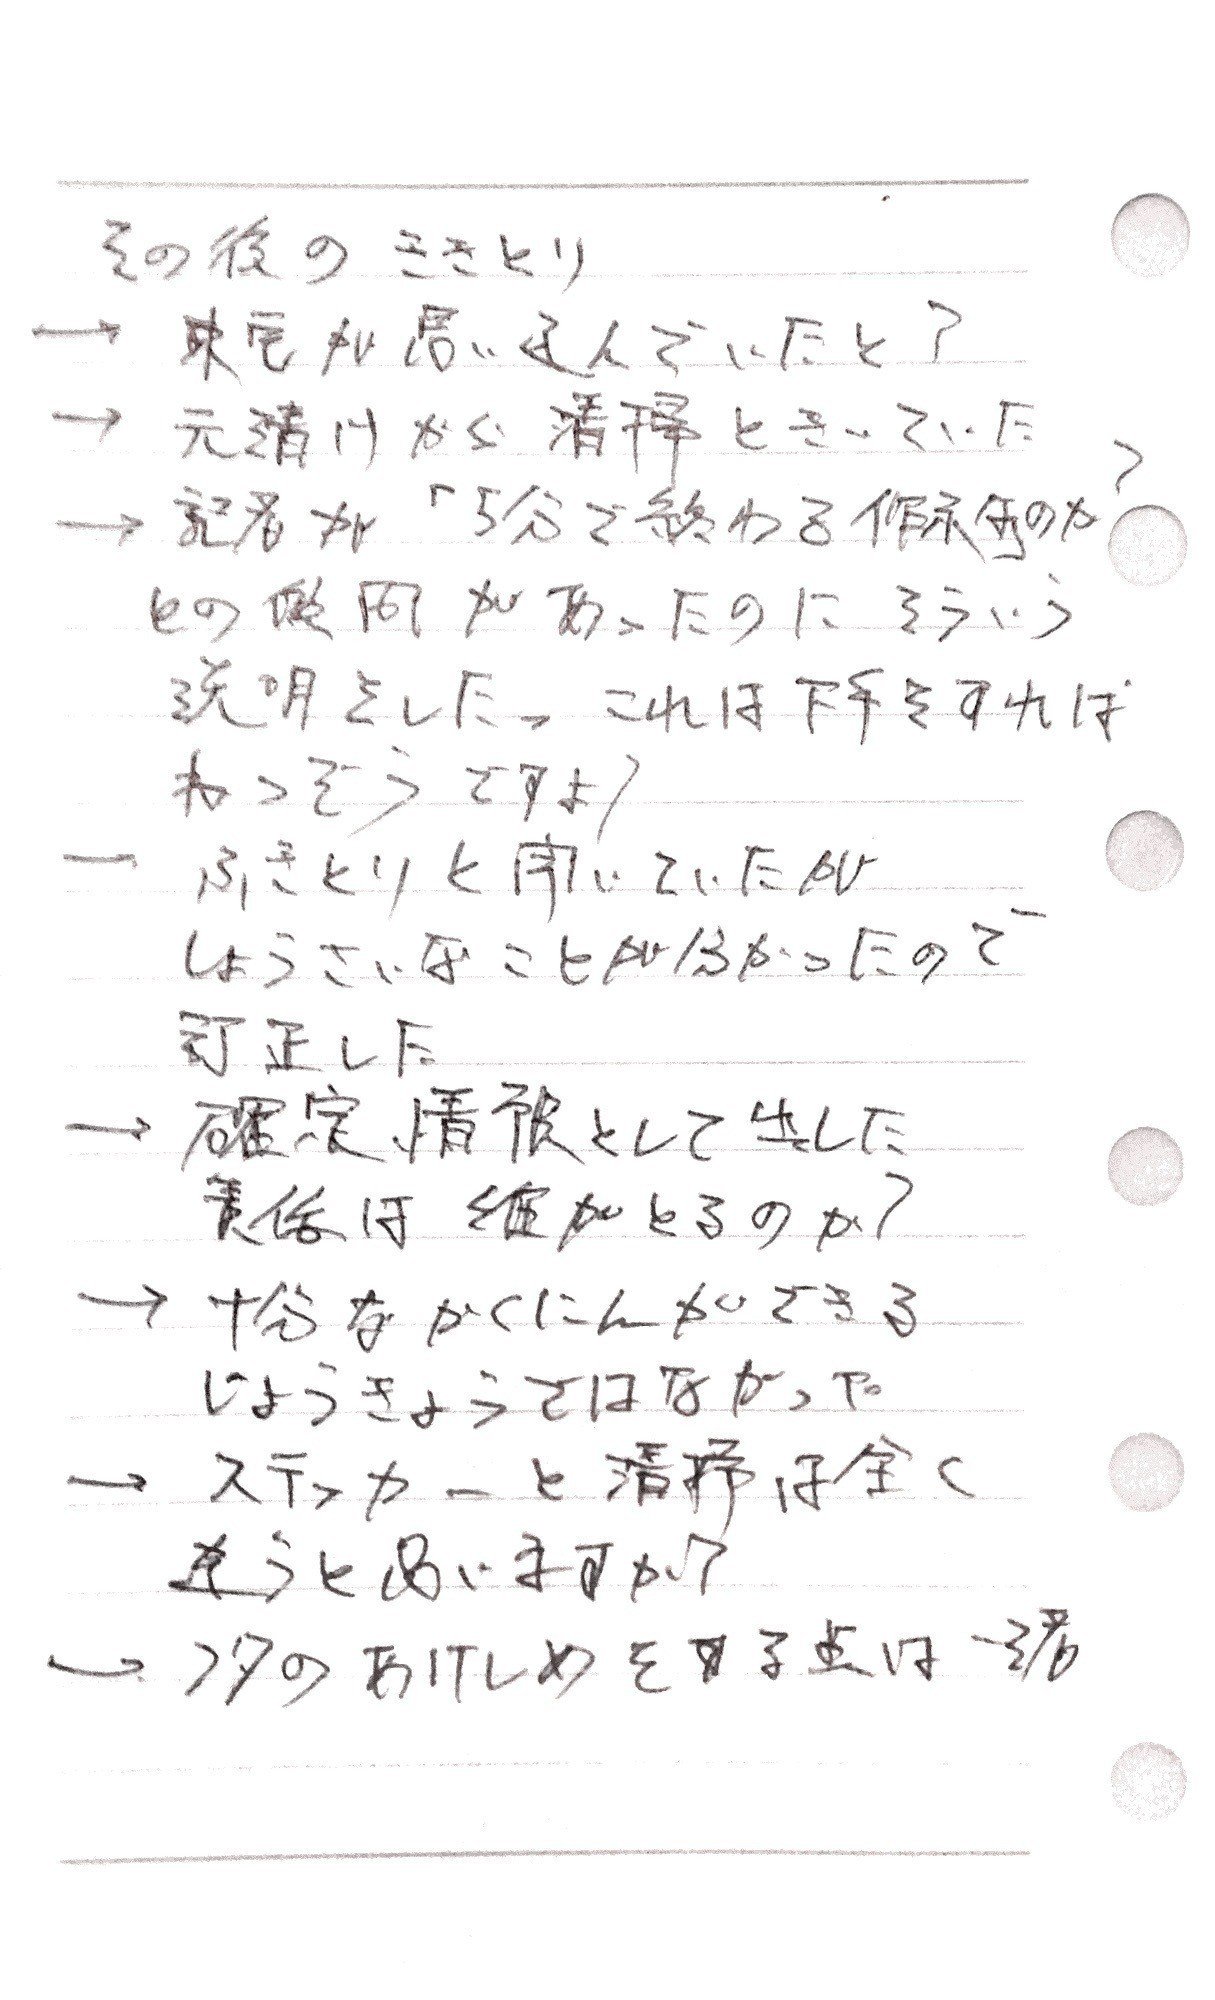 その後のききとり
→ 東電が思い込んでいたと?
→ 元請けから清掃ときいていた
→ 記者が「5分で終わる作業なのか?
との質問があったのにそういう
説明をした。これは下手をすれば
ねつぞうですよ?
→ ふきとりと聞いていたが
しょうさいなことが分かったので
訂正した
→ 確定情報として出した
責任は誰がとるのか?
→ 十分なかくにんができる
じょうきょうではなかった
→ ステッカーと清掃は全く
違うと思いますか?
→ フタのあけしめをする点は一緒